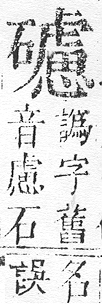 譌字舊名
音慮石誤